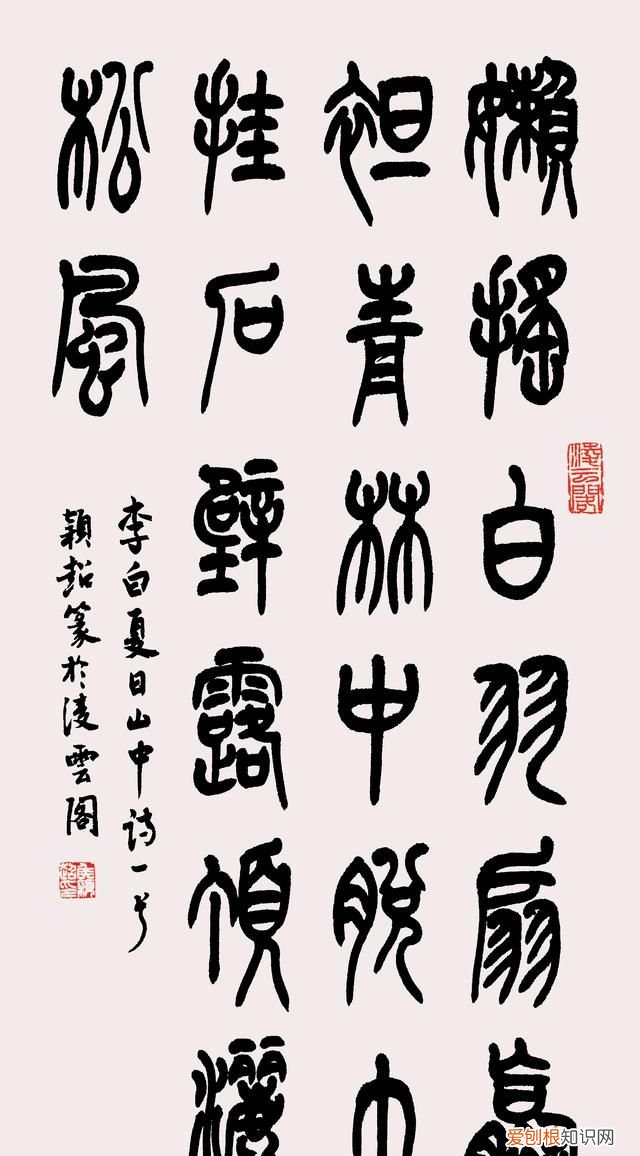 嬾搖白羽扇臝
袒青林中脫巾
挂石壁露頂灑
松風
李白夏日山中詩一首
穎超篆於淩雲閣
淩云閣
爱刨根知识网